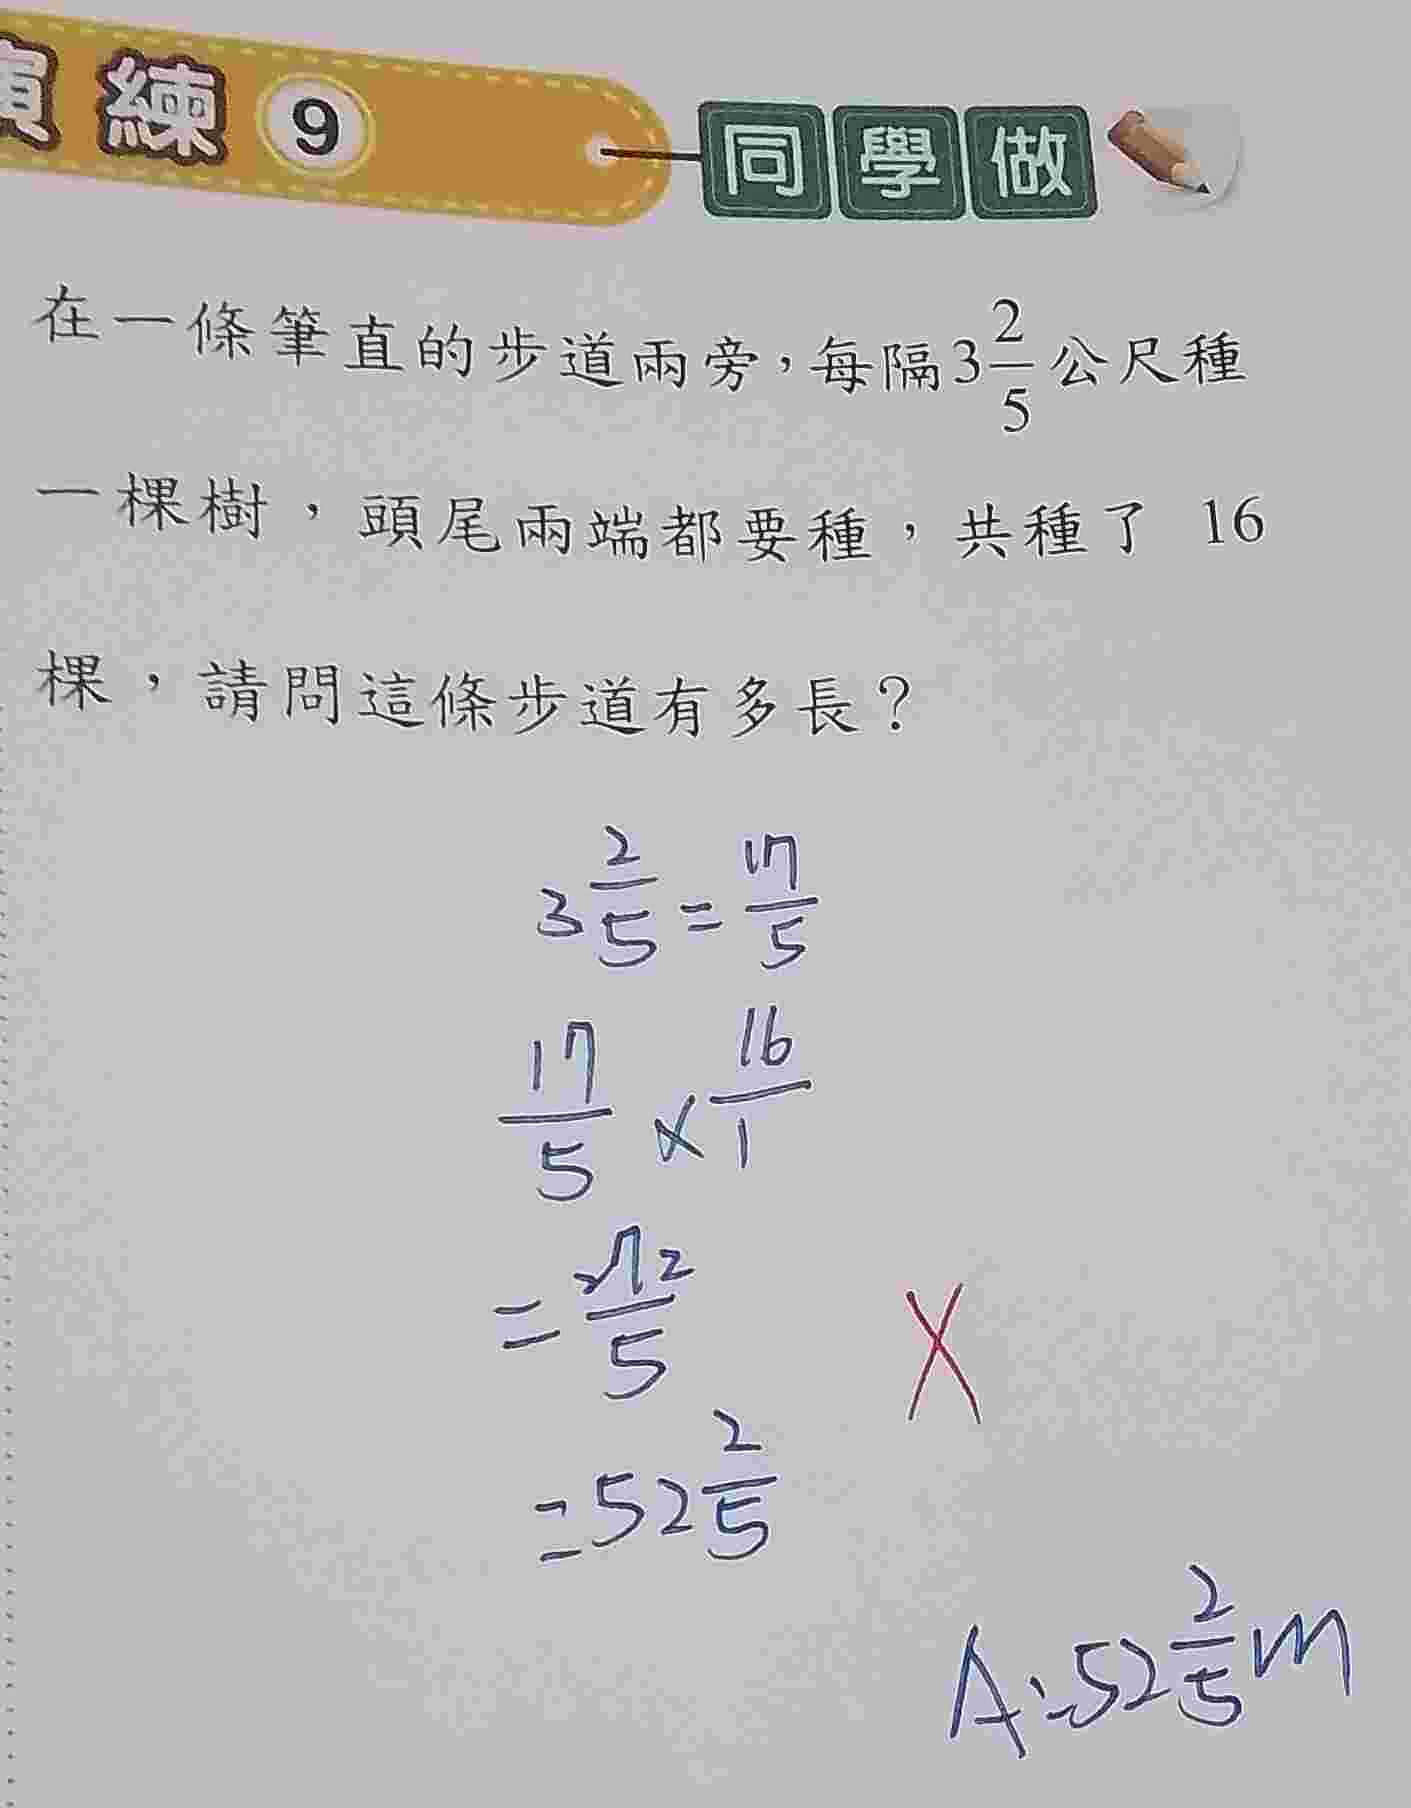 演練 9 同學做
在一條筆直的步道兩旁，每隔3 2/5 公尺種
一棵樹，頭尾兩端都要種，共種了 16
棵，請問這條步道有多長？
3 2/5 = 17/5
17/5 × 16/1
= 272/5
= 52 2/5
A: 52 2/5 m